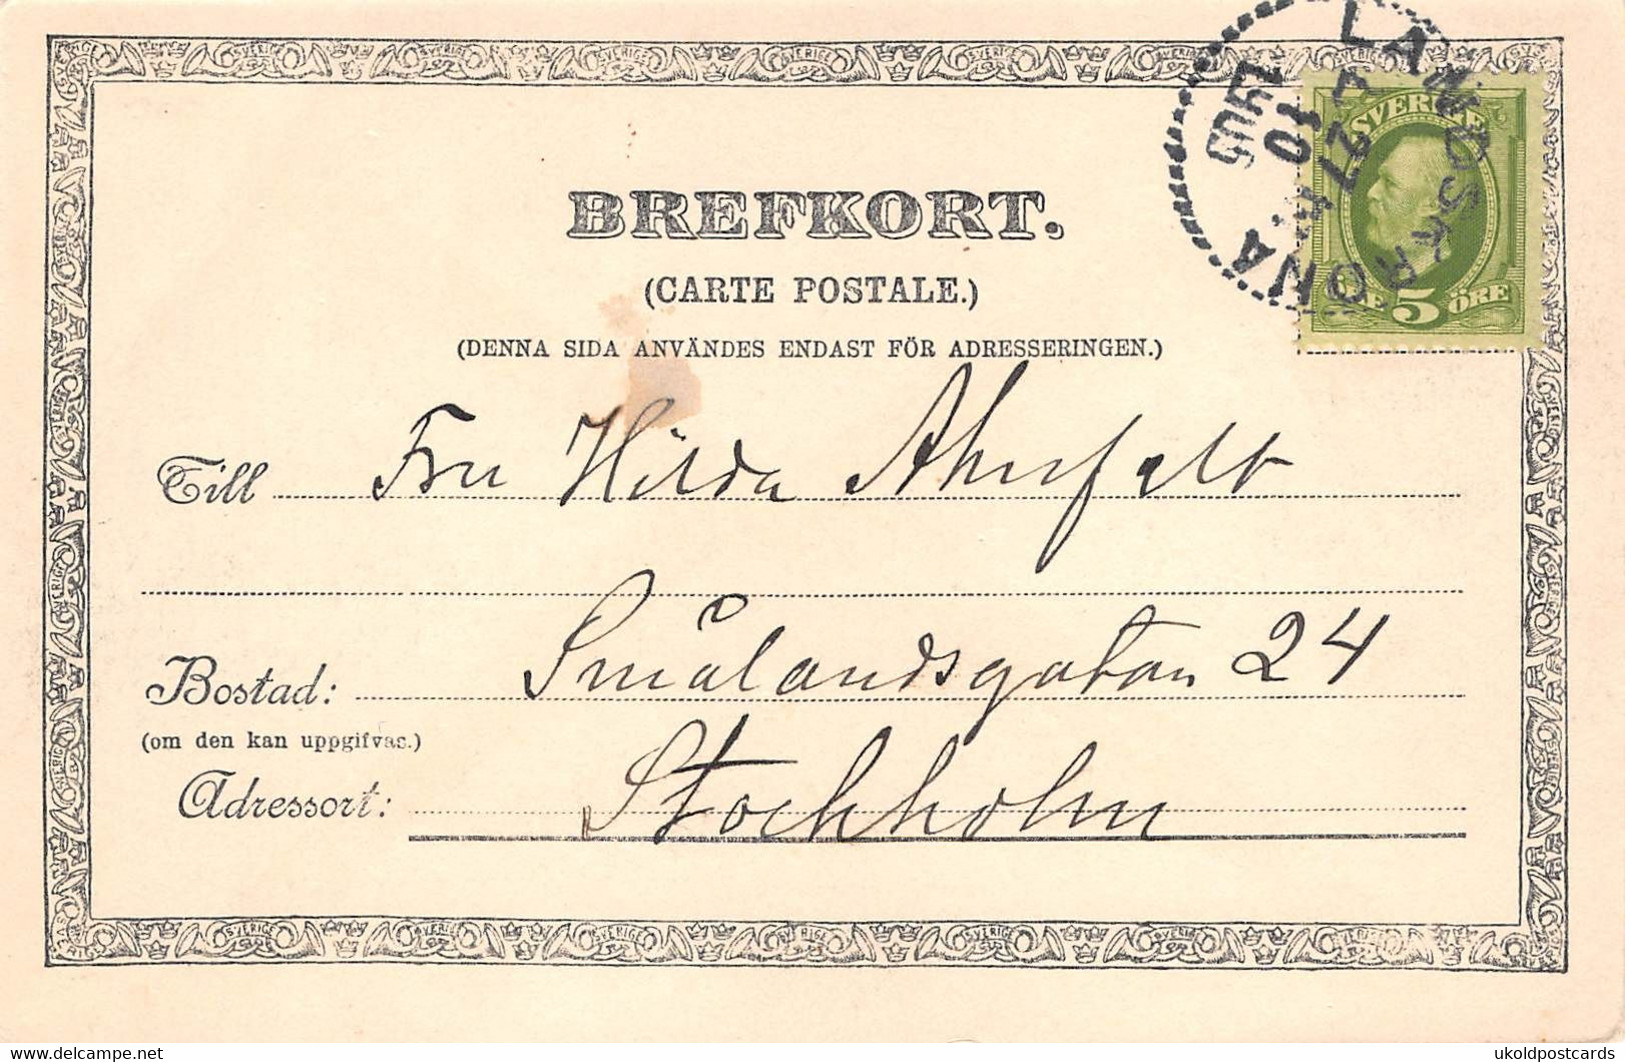 BREFKORT.
(CARTE POSTALE.)
(DENNA SIDA ANVÄNDES ENDAST FÖR ADRESSERINGEN.)
LANDSKRONA
27 10
SVERIGE
5 ÖRE
Till Fru Hilda Ahnfelt
Bostad: Smålandsgatan 24
(om den kan uppgifvas.)
Adressort: Stockholm
ukoldpostcards